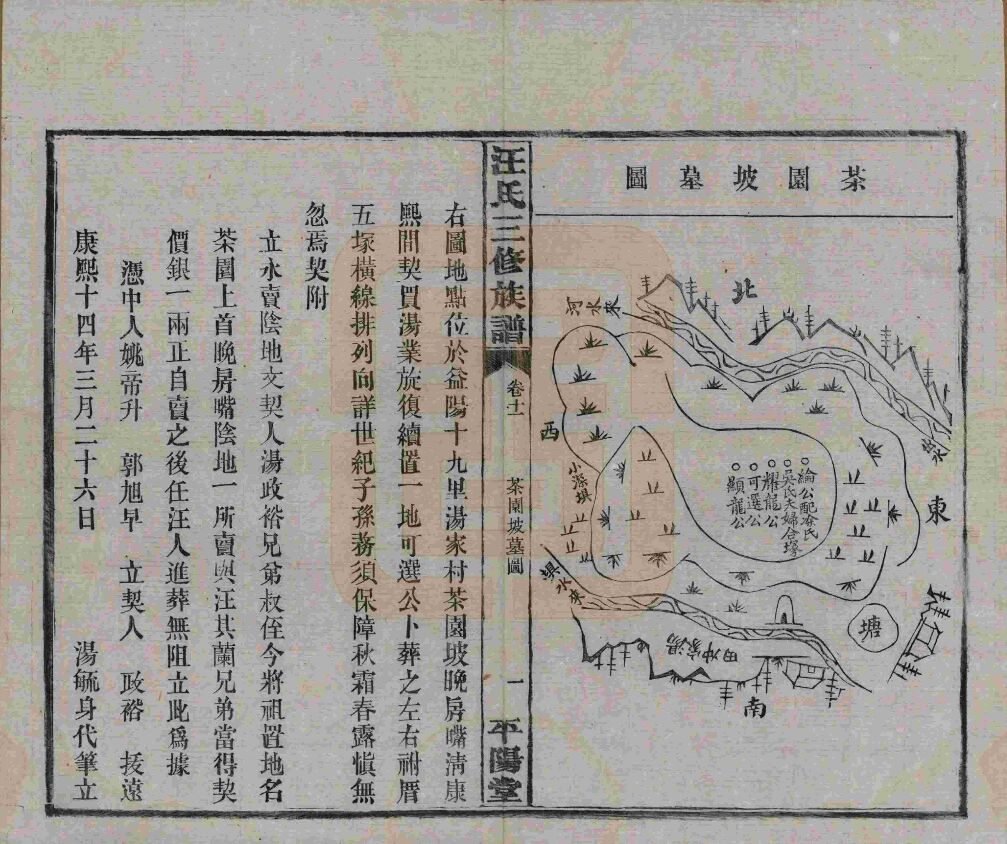 茶園坡墓圖
北
東
西
南
河水來
水
綸公配秦氏
吳氏夫婦合塚
耀龍公
可選公
顯龍公
小
塘
垻水來
湯家沖田
汪氏三修族譜
卷十一
茶園坡墓圖
一
平陽堂
右圖地點位於益陽十九里湯家村茶園坡晚房嘴清康
熙間契買湯業旋復續置一地可選公卜葬之左右祔厝
五塚橫線排列向詳世紀子孫務須保障秋霜春露慎無
忽焉契附
立永賣陰地文契人湯政裕兄弟叔侄今將祖置地名
茶園上首晚房嘴陰地一所賣與汪其蘭兄弟當得契
價銀一兩正自賣之後任汪人進葬無阻立此為據
憑中人姚帝升 郭旭早 立契人 政裕 拔遠
康熙十四年三月二十六日 湯毓身代筆立